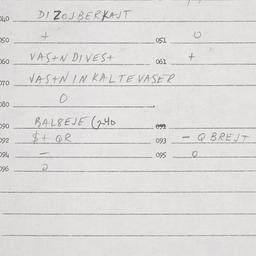 040 DI ZOJBERKAJT
050 + 051 0
060 VAS+N DIVES+ 061 +
070 VAS+N IN KALTEVASER
080 0
090 BALBEJE 091
092 $+ QR 093 - Q BREJT
094 - 095 0
096 0